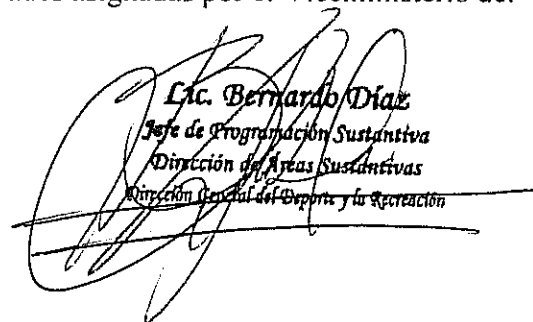 asignadas por el Viceministerio de
Lic. Bernardo Díaz
Jefe de Programación Sustantiva
Dirección de Áreas Sustantivas
Dirección General del Deporte y la Recreación